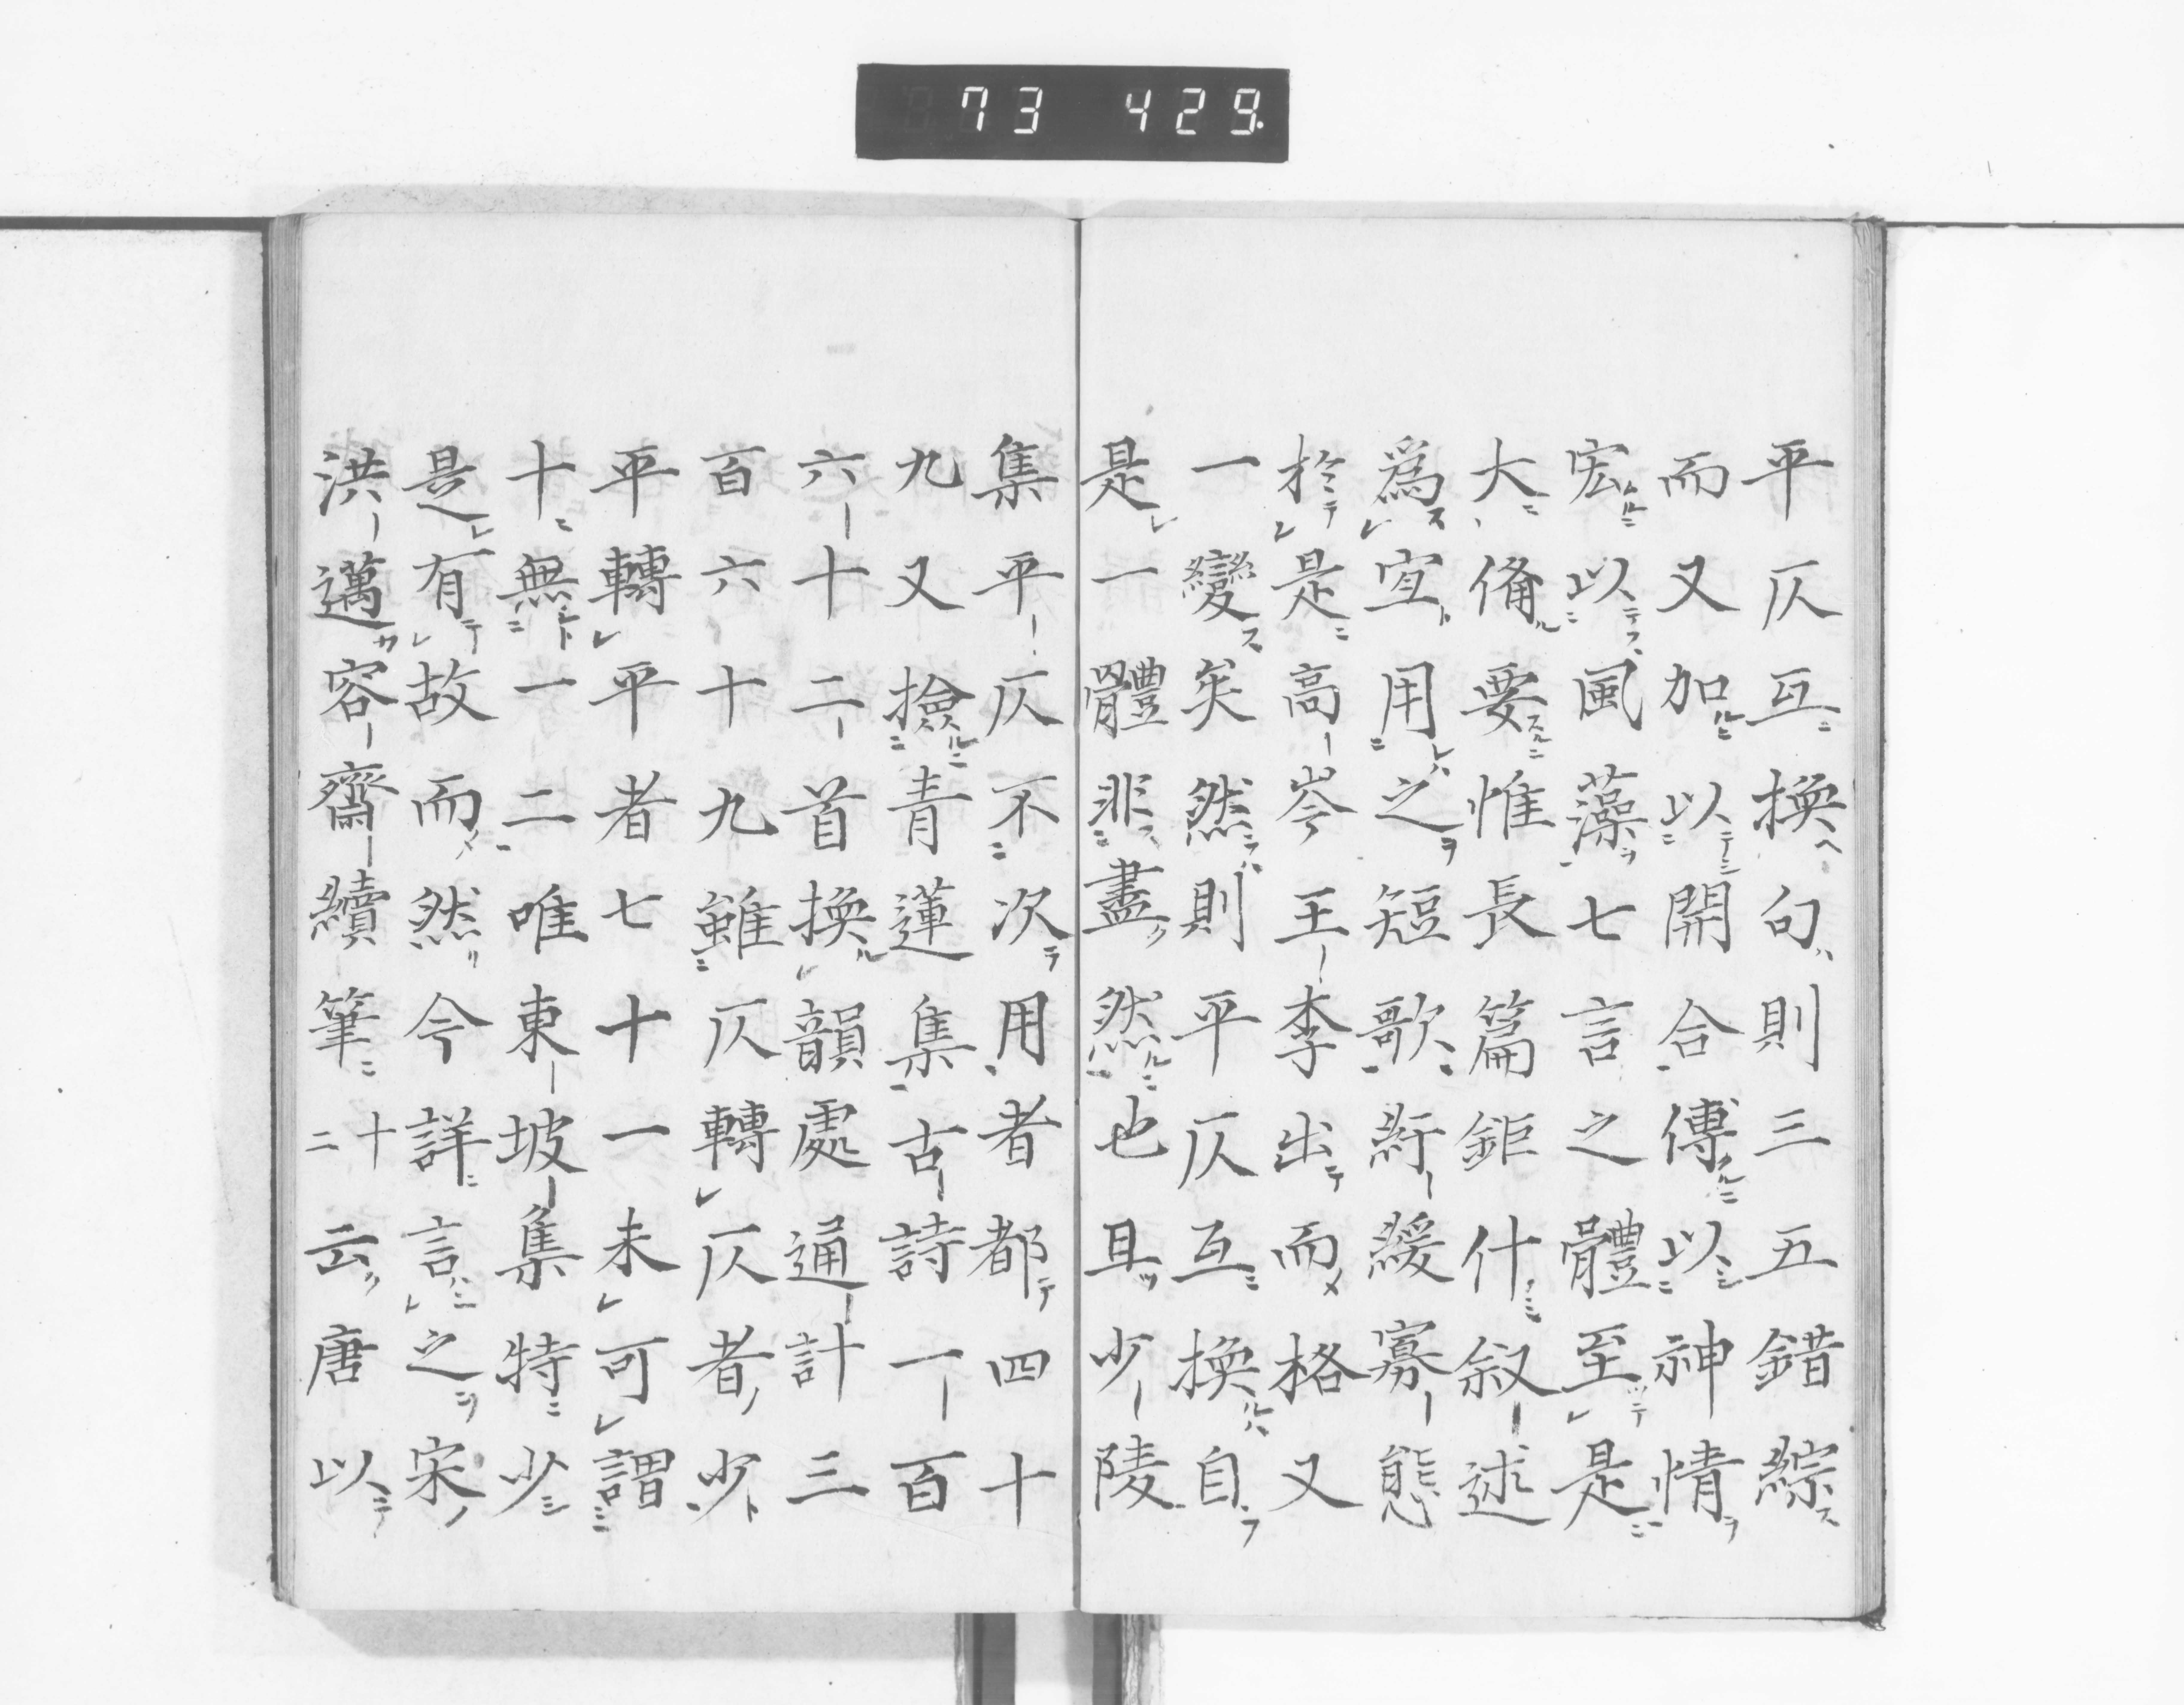 73 429.
平仄互換句則三五錯綜
而又加以開合傳以神情
宏以風藻七言之體至是
大備要惟長篇鉅什叙述
爲宜用之短歌紆緩寡態
於是高岑王李出而格又
一變矣然則平仄互換自
是一體非盡然也且少陵
集平仄不次用者都四十
九又撿青蓮集古詩一百
六十二首換韻處通計三
百六十九雖仄轉仄者少
平轉平者七十一未可謂
十無一二唯東坡集特少
是有故而然今詳言之宋
洪邁容齋續筆十二云唐以